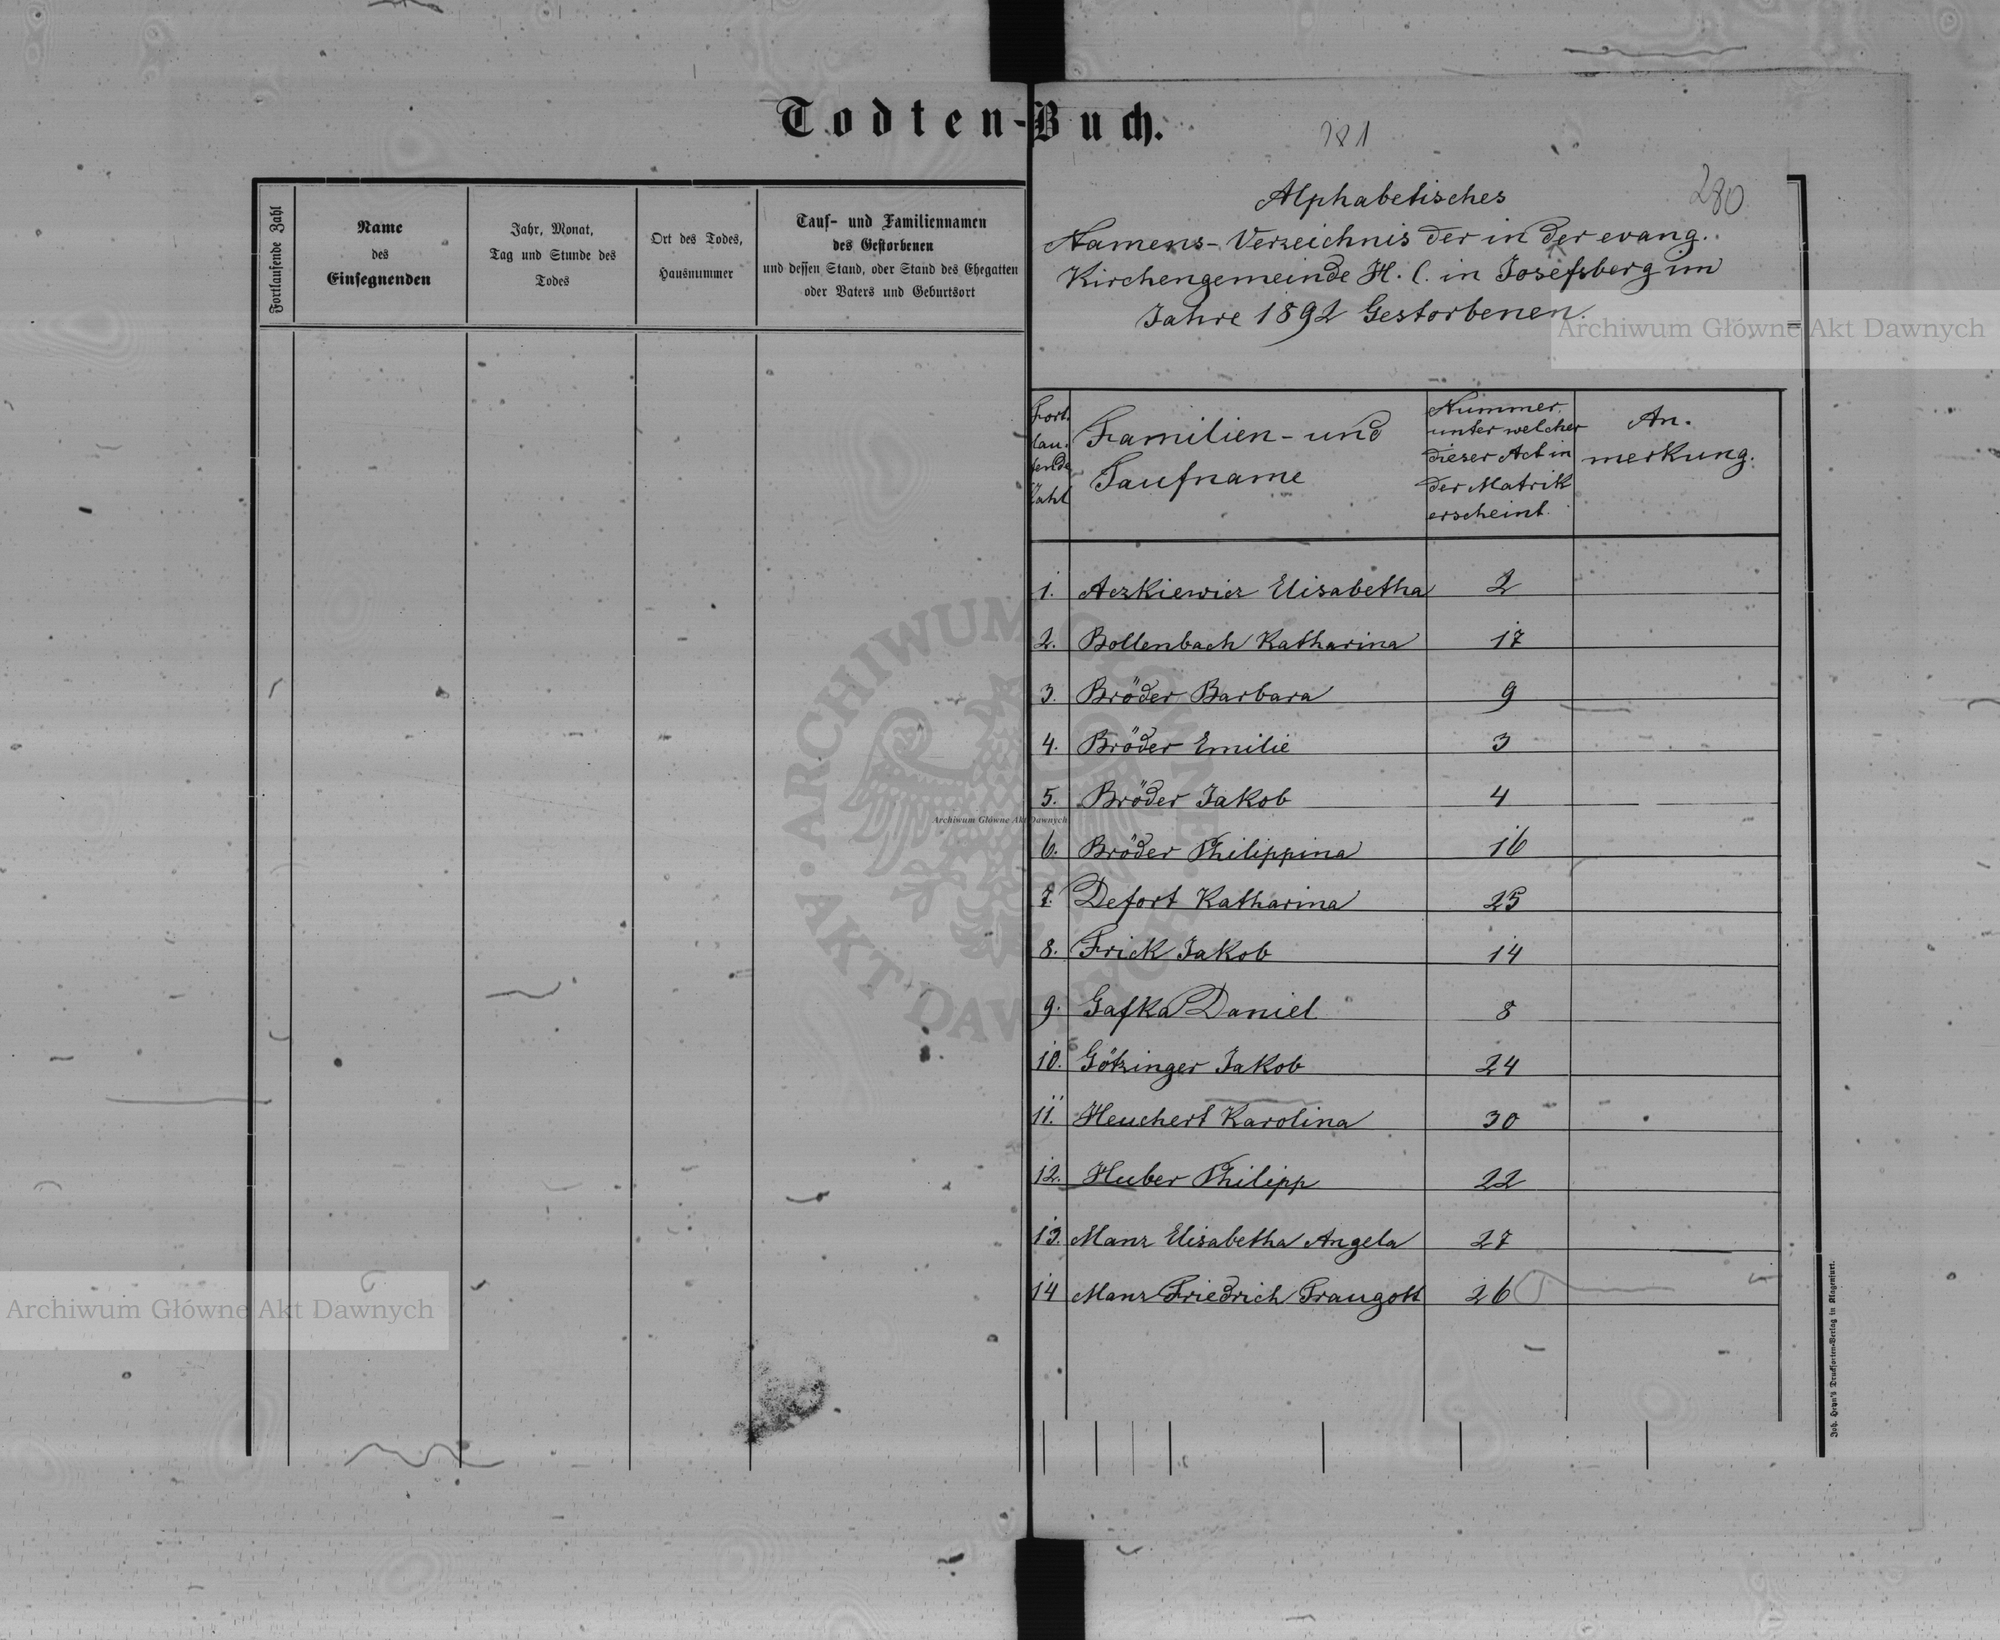 Todten-Buch.
281
280
Fortlaufende Zahl
Name
des
Einsegnenden
Jahr, Monat,
Tag und Stunde des
Todes
Ort des Todes,
Hausnummer
Tauf- und Familiennamen
des Gestorbenen
und dessen Stand, oder Stand des Ehegatten
oder Vaters und Geburtsort
Alphabetisches
Namens-Verzeichnis der in der evang.
Kirchengemeinde H. C. in Josefsberg im
Jahre 1892 Gestorbenen.
Archiwum Główne Akt Dawnych
Fort.
lau.
fende
Zahl
Familien- und
Taufname
Nummer.
unter welcher
dieser Act in
der Matrik
erscheint.
An.
merkung.
1. Aczkiewicz Elisabetha 2
2. Bollenbach Katharina 17
3. Bröder Barbara 9
4. Bröder Emilie 3
5. Bröder Jakob 4
6. Bröder Philippina 16
7. Defort Katharina 25
8. Frick Jakob 14
9. Gafka Daniel 8
10. Götzinger Jakob 24
11. Heuchert Karolina 30
12. Huber Philipp 22
13. Manz Elisabetha Angela 27
14 Manz Friedrich Traugott 26
ARCHIWUM GŁÓWNE AKT DAWNYCH
Archiwum Główne Akt Dawnych
Archiwum Główne Akt Dawnych
Joh. Heyn's Drucksorten-Verlag in Klagenfurt.